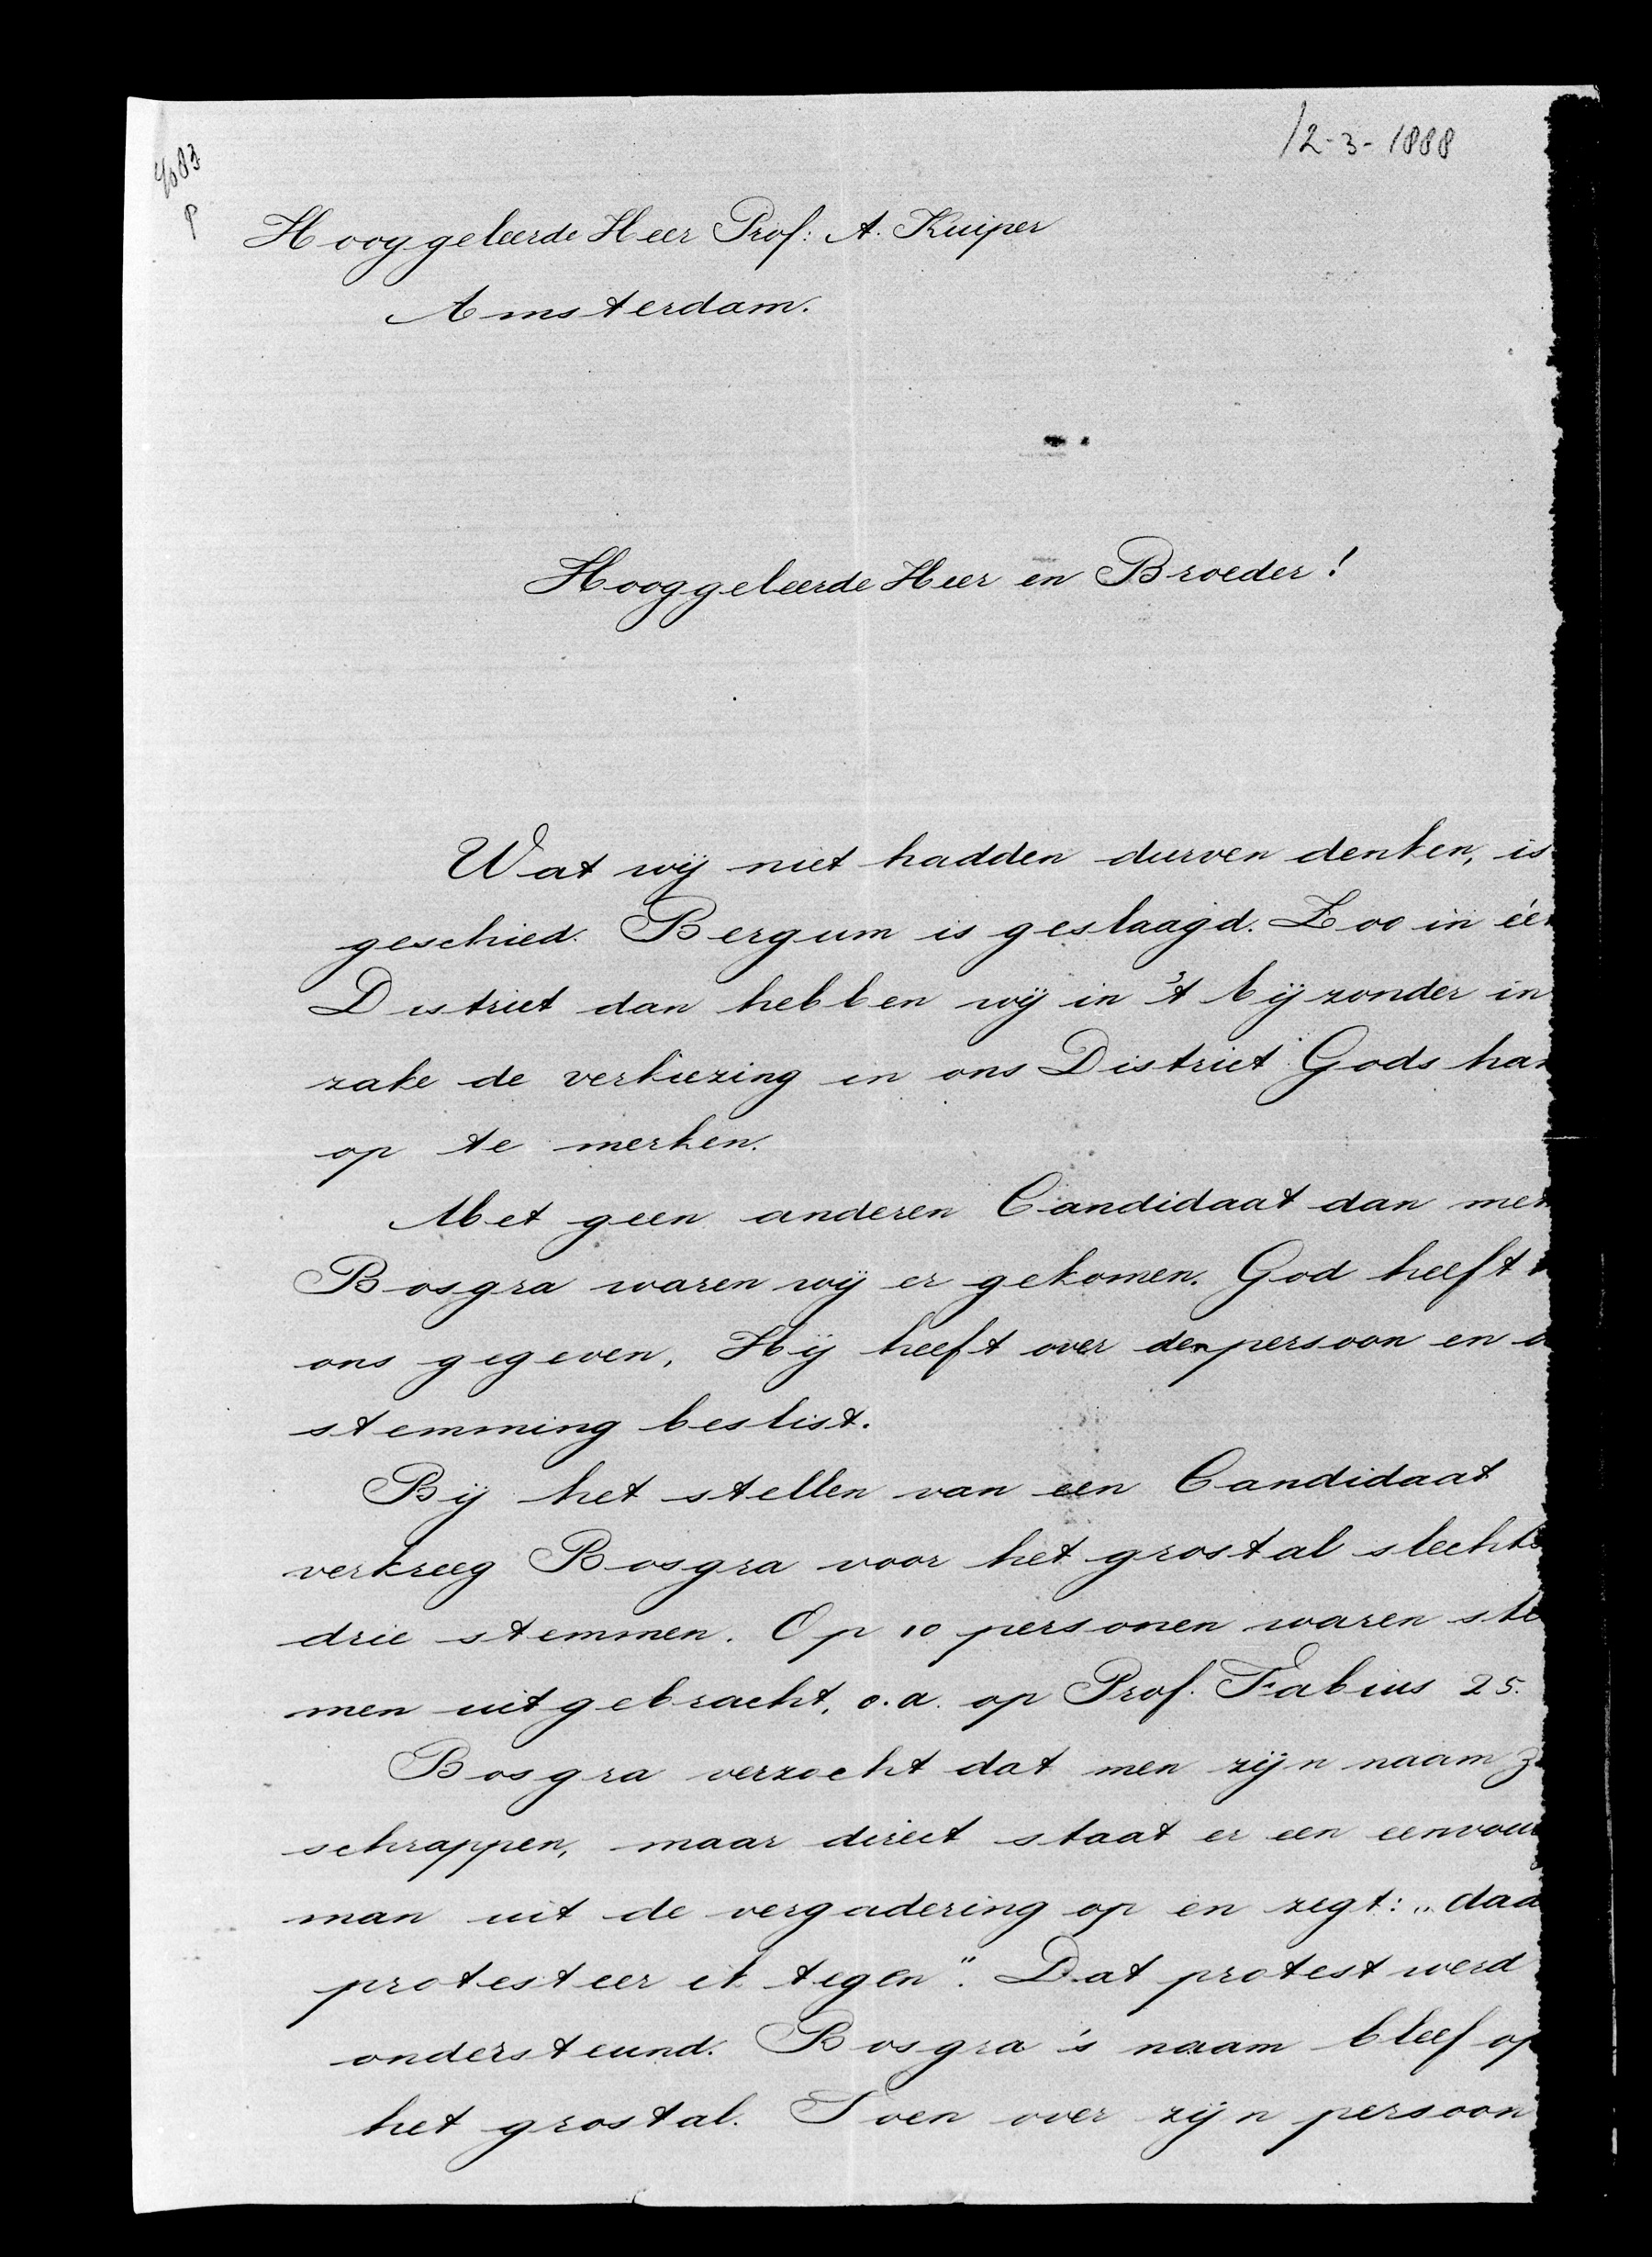 12-3-1888
4083
P
Hooggeleerde Heer Prof: A. Kuiper
Amsterdam.
Hooggeleerde Heer en Broeder!
Wat wij niet hadden durven denken, is
geschied. Bergum is geslaagd. Zoo in één
District dan hebben wij in 't bijzonder in
zake de verkiezing in ons District Gods han
op te merken.
Met geen anderen Candidaat dan met
Bosgra waren wij er gekomen. God heeft
ons gegeven, Hij heeft over den persoon en
stemming beslist.
Bij het stellen van een Candidaat
verkreeg Bosgra voor het grostal slechts
drie stemmen. Op 10 personen waren ste
men uitgebracht, o.a. op Prof. Fabius 25.
Bosgra verzocht dat men zijn naam z
schrappen, maar direct staat er een eenvou
man uit de vergadering op en zegt: „daa
protesteer ik tegen". Dat protest werd
ondersteund. Bosgra's naam bleef op
het grostal. Toen over zijn persoon